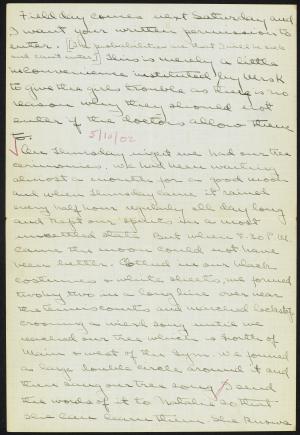 Field day comes next Saturday and
I want your written permission to
enter. [The probabilities are that I will be sick
and can't enter.] This is merely a little
inconvenience instituted by Mrs K
to give the girls trouble as there is no
reason why they should not
enter if the doctors allow them
to.
5/10/02
On Thursday night we had our tree
ceremonies. We had been waiting
almost a winter for a good moon
and when Thursday came it rained
every half hour regularly all day long
and kept our spirits in a most
unsettled state. But when 7.30 P.M.
came the moon could not have
been better. Clothed in our black
costumes & white sheets, we formed
two by two in a long line over near
the tennis courts and marched lockstep
crooning a weird song until we
reached our tree which is North of
Main & west of the Gym. We formed
a large double circle around it and
then sung our tree song. I send
the words of it to Natalie so that
she can learn them. She knows